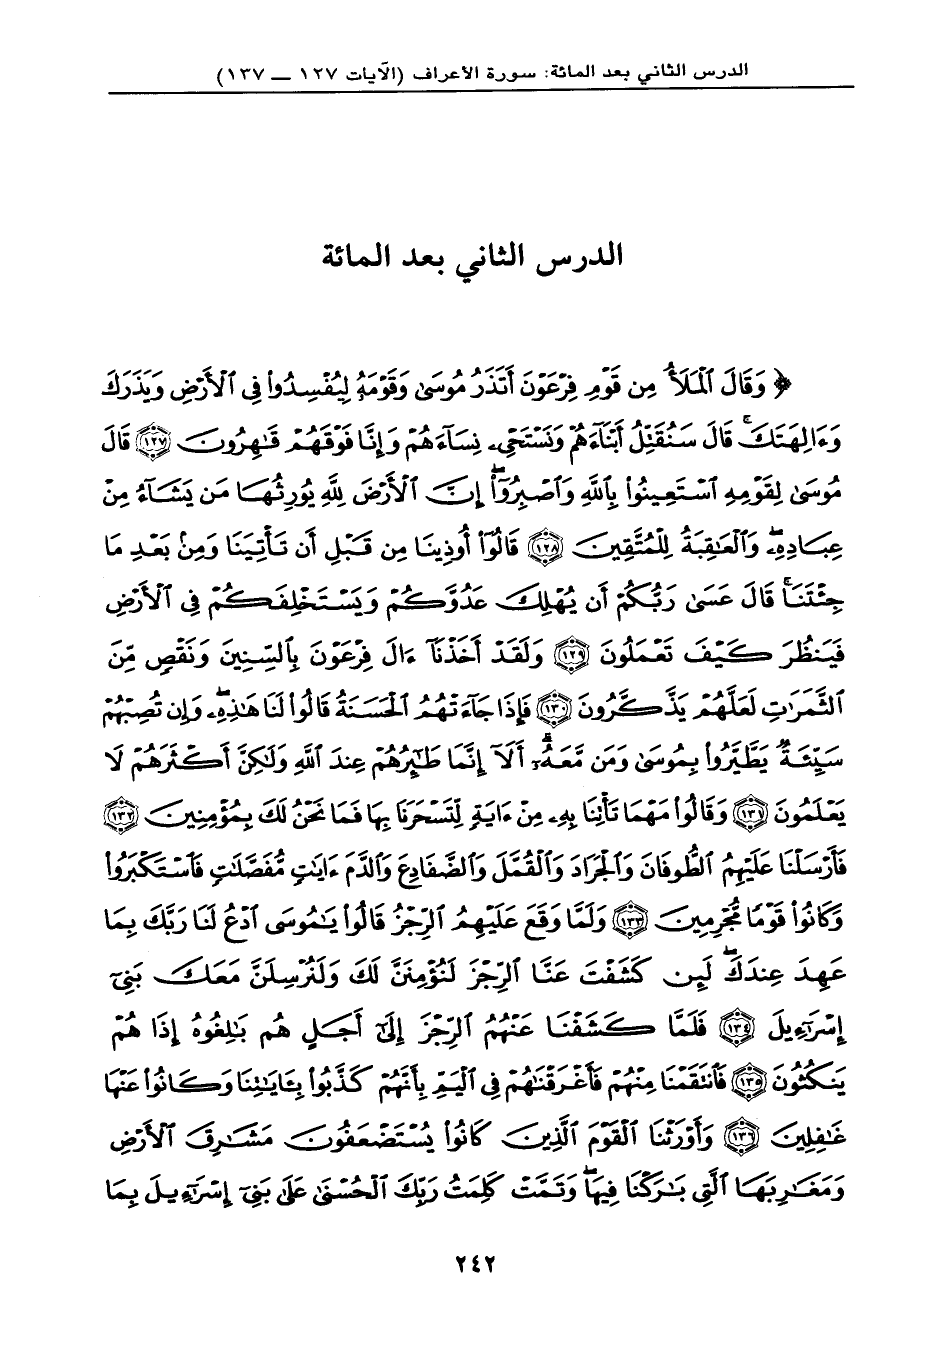 الدرس الثاني بعد المائة: سورة الأعراف (الآيات ١٢٧ — ١٣٧)
الدرس الثاني بعد المائة
﴿ وَقَالَ ٱلْمَلَأُ مِن قَوْمِ فِرْعَوْنَ أَتَذَرُ مُوسَىٰ وَقَوْمَهُۥ لِيُفْسِدُوا۟ فِى ٱلْأَرْضِ وَيَذَرَكَ
وَءَالِهَتَكَ ۚ قَالَ سَنُقَتِّلُ أَبْنَآءَهُمْ وَنَسْتَحْىِۦ نِسَآءَهُمْ وَإِنَّا فَوْقَهُمْ قَٰهِرُونَ ١٢٧ قَالَ
مُوسَىٰ لِقَوْمِهِ ٱسْتَعِينُوا۟ بِٱللَّهِ وَٱصْبِرُوٓا۟ ۖ إِنَّ ٱلْأَرْضَ لِلَّهِ يُورِثُهَا مَن يَشَآءُ مِنْ
عِبَادِهِۦ ۖ وَٱلْعَٰقِبَةُ لِلْمُتَّقِينَ ١٢٨ قَالُوٓا۟ أُوذِينَا مِن قَبْلِ أَن تَأْتِيَنَا وَمِنۢ بَعْدِ مَا
جِئْتَنَا ۚ قَالَ عَسَىٰ رَبُّكُمْ أَن يُهْلِكَ عَدُوَّكُمْ وَيَسْتَخْلِفَكُمْ فِى ٱلْأَرْضِ
فَيَنظُرَ كَيْفَ تَعْمَلُونَ ١٢٩ وَلَقَدْ أَخَذْنَآ ءَالَ فِرْعَوْنَ بِٱلسِّنِينَ وَنَقْصٍ مِّنَ
ٱلثَّمَرَٰتِ لَعَلَّهُمْ يَذَّكَّرُونَ ١٣٠ فَإِذَا جَآءَتْهُمُ ٱلْحَسَنَةُ قَالُوا۟ لَنَا هَٰذِهِۦ ۖ وَإِن تُصِبْهُمْ
سَيِّئَةٌ يَطَّيَّرُوا۟ بِمُوسَىٰ وَمَن مَّعَهُۥٓ ۗ أَلَآ إِنَّمَا طَٰٓئِرُهُمْ عِندَ ٱللَّهِ وَلَٰكِنَّ أَكْثَرَهُمْ لَا
يَعْلَمُونَ ١٣١ وَقَالُوا۟ مَهْمَا تَأْتِنَا بِهِۦ مِنْ ءَايَةٍ لِّتَسْحَرَنَا بِهَا فَمَا نَحْنُ لَكَ بِمُؤْمِنِينَ ١٣٢
فَأَرْسَلْنَا عَلَيْهِمُ ٱلطُّوفَانَ وَٱلْجَرَادَ وَٱلْقُمَّلَ وَٱلضَّفَادِعَ وَٱلدَّمَ ءَايَٰتٍ مُّفَصَّلَٰتٍ فَٱسْتَكْبَرُوا۟
وَكَانُوا۟ قَوْمًا مُّجْرِمِينَ ١٣٣ وَلَمَّا وَقَعَ عَلَيْهِمُ ٱلرِّجْزُ قَالُوا۟ يَٰمُوسَى ٱدْعُ لَنَا رَبَّكَ بِمَا
عَهِدَ عِندَكَ ۖ لَئِن كَشَفْتَ عَنَّا ٱلرِّجْزَ لَنُؤْمِنَنَّ لَكَ وَلَنُرْسِلَنَّ مَعَكَ بَنِىٓ
إِسْرَٰٓءِيلَ ١٣٤ فَلَمَّا كَشَفْنَا عَنْهُمُ ٱلرِّجْزَ إِلَىٰٓ أَجَلٍ هُم بَٰلِغُوهُ إِذَا هُمْ
يَنكُثُونَ ١٣٥ فَٱنتَقَمْنَا مِنْهُمْ فَأَغْرَقْنَٰهُمْ فِى ٱلْيَمِّ بِأَنَّهُمْ كَذَّبُوا۟ بِـَٔايَٰتِنَا وَكَانُوا۟ عَنْهَا
غَٰفِلِينَ ١٣٦ وَأَوْرَثْنَا ٱلْقَوْمَ ٱلَّذِينَ كَانُوا۟ يُسْتَضْعَفُونَ مَشَٰرِقَ ٱلْأَرْضِ
وَمَغَٰرِبَهَا ٱلَّتِى بَٰرَكْنَا فِيهَا ۖ وَتَمَّتْ كَلِمَتُ رَبِّكَ ٱلْحُسْنَىٰ عَلَىٰ بَنِىٓ إِسْرَٰٓءِيلَ بِمَا
٢٤٢